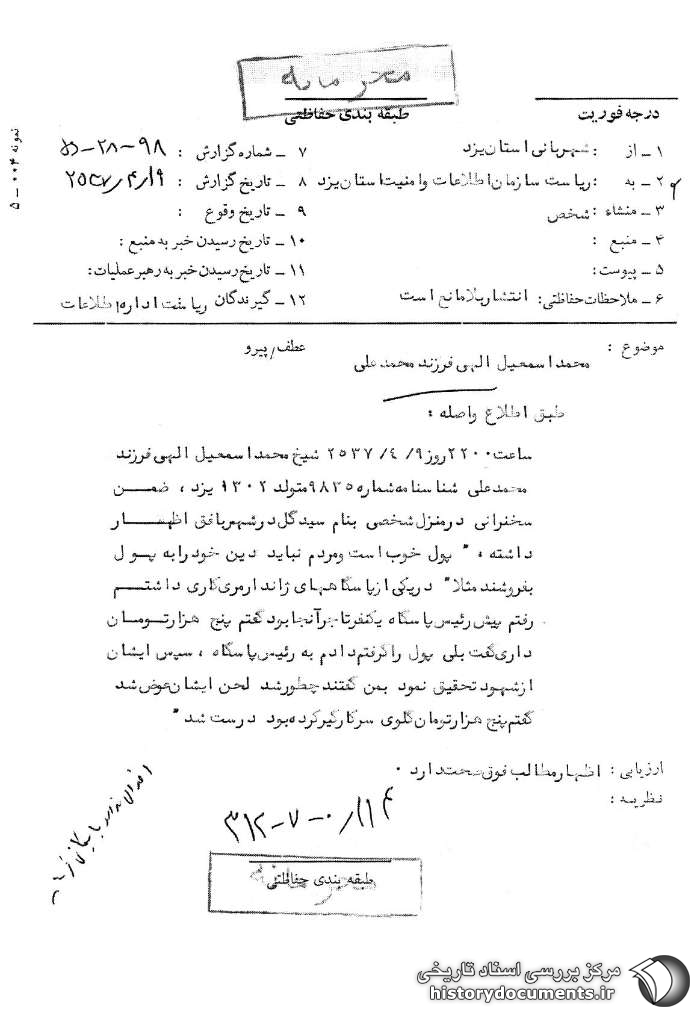 محرمانه
طبقه بندی حفاظتی
درجه فوریت
نمونه ۰۰۴ – ۵
۱ – از : شهربانی استان یزد
۲ – به : ریاست سازمان اطلاعات و امنیت استان یزد
۳ – منشاء : شخص
۴ – منبع :
۵ – پیوست :
۶ – ملاحظات حفاظتی : انتشار بلامانع است
۷ – شماره گزارش : ۹۸–۲۸–۵۵
۸ – تاریخ گزارش : ۲۵۳۷/۴/۱۹
۹ – تاریخ وقوع :
۱۰ – تاریخ رسیدن خبر به منبع :
۱۱ – تاریخ رسیدن خبر به رهبر عملیات :
۱۲ – گیرندگان ریاست اداره اطلاعات
موضوع :
عطف / پیرو
محمد اسمعیل الهی فرزند محمد علی
طبق اطلاع واصله :
ساعت ۲۲۰۰ روز ۹/ ۴/ ۲۵۳۷ شیخ محمد اسمعیل الهی فرزند
محمد علی شناسنامه شماره ۹۸۳۵ متولد ۱۳۰۲ یزد ، ضمن
سخنرانی در منزل شخصی بنام سید گل در شهر بافق اظهار
داشته ، " پول خوب است و مردم نباید دین خود را به پول
بفروشند مثلا" در یکی از پاسگاههای ژاندارمری کاری داشتم
رفتم پیش رئیس پاسگاه یکنفر تاجر آنجا بود گفتم پنج هزار تومان
داری گفت بلی پول را گرفتم دادم به رئیس پاسگاه ، سپس ایشان
از شهود تحقیق نمود بمن گفتند چطور شد لحن ایشان عوض شد
گفتم پنج هزار تومان گلوی سرکار گیر کرده بود درست شد "
ارزیابی : اظهار مطالب فوق صحت دارد .
نظریه :
۳۱۲–۷–۰/۱۱۴
طبقه بندی حفاظتی
محرمانه
مرکز بررسی اسناد تاریخی
historydocuments.ir